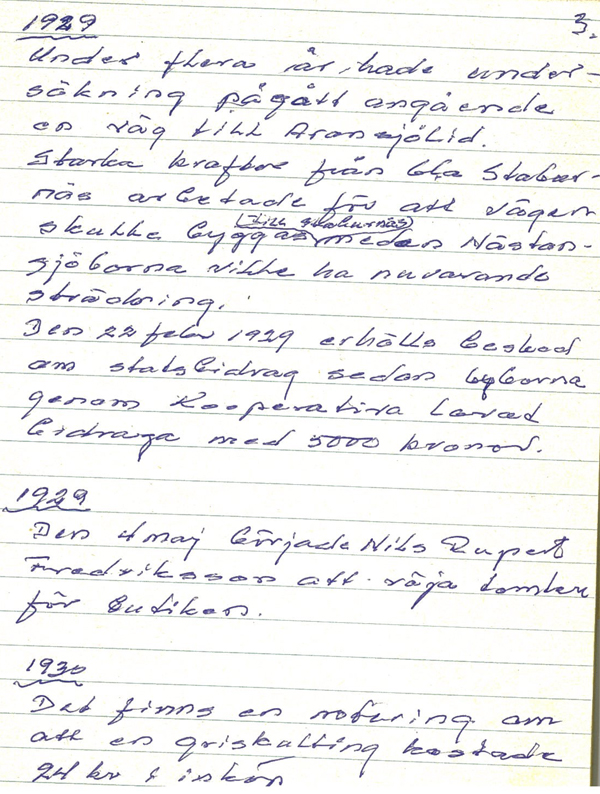 1929
3.
Under flera år hade under-
sökning pågått angående
en väg till Aronsjölid.
Starka krafter från bla Stabur-
näs arbetade för att vägen
(till staburnäs)
skulle byggas, medan Nästan-
sjöborna ville ha nuvarande
sträckning.
Den 22 febr 1929 erhölls besked
om statsbidrag sedan byborna
genom Kooperativa lovat
bidraga med 5000 kronor.
1929
Den 4 maj började Nils Rupert
Fredriksson att röja tomten
för butiken.
1930
Det finns en notering om
att en griskulting kostade
24 kr i inköp